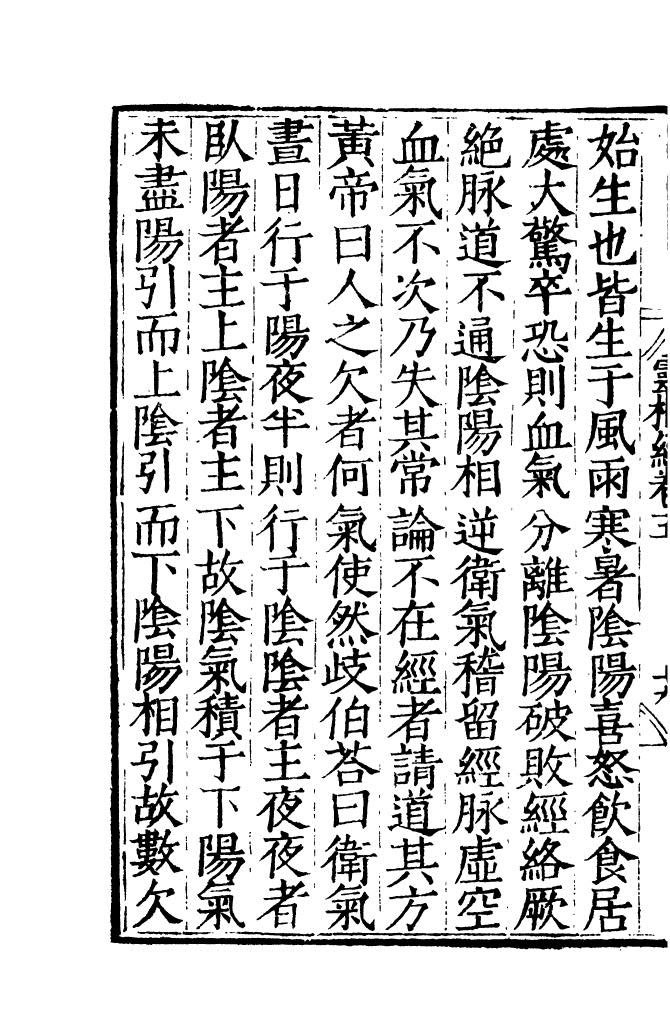 始生也皆生于風雨寒暑陰陽喜怒飲食居
處大驚卒恐則血氣分離陰陽破敗經絡厥
絶脉道不通陰陽相逆衛氣稽留經脉虛空
血氣不次乃失其常論不在經者請道其方
黃帝曰人之欠者何氣使然歧伯荅曰衛氣
晝日行于陽夜半則行于陰陰者主夜夜者
臥陽者主上陰者主下故陰氣積于下陽氣
未盡陽引而上陰引而下陰陽相引故數欠